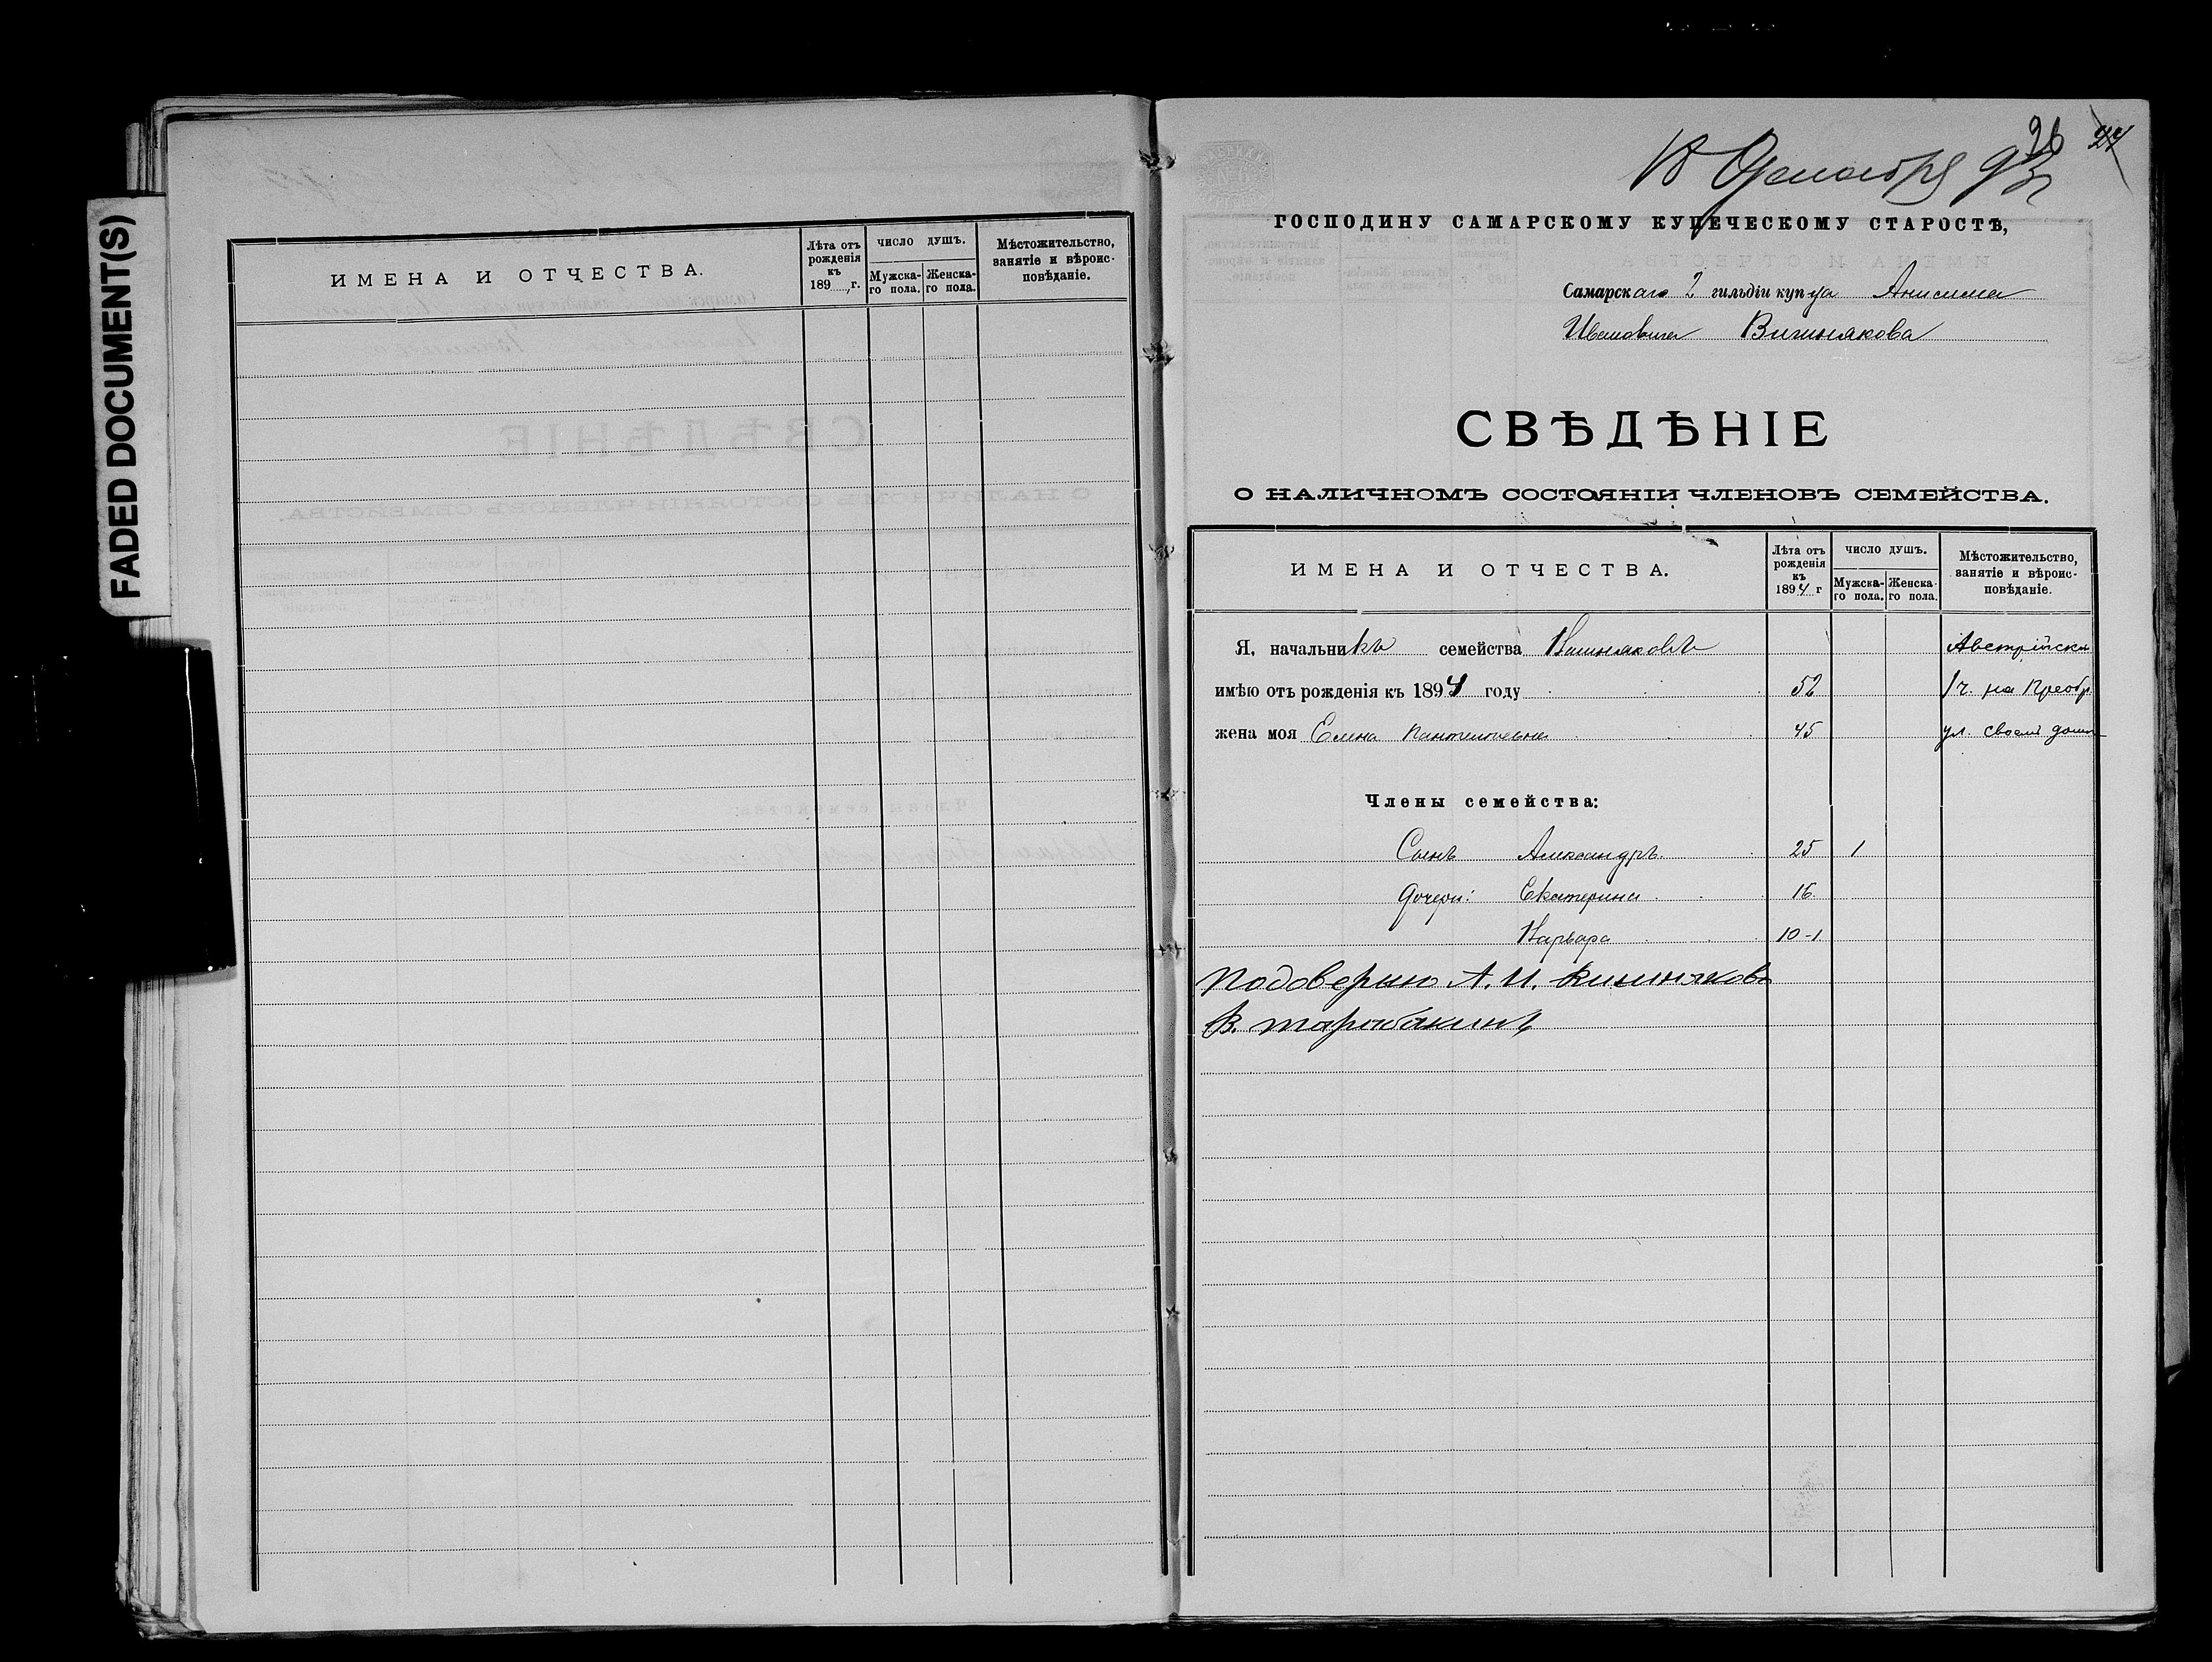 FADED DOCUMENT(S)
ИМЕНА И ОТЧЕСТВА.
Лѣта отъ рожденія къ 189 г.
ЧИСЛО ДУШЪ.
Мужска-го пола.
Женска-го пола.
Мѣстожительство, занятіе и вѣроис-повѣданіе.
Декабря 93
26
ГОСПОДИНУ САМАРСКОМУ КУПЕЧЕСКОМУ СТАРОСТѢ,
Самарскаго 2 гильдіи купца Анисима
Ивановича Вишнякова
СВѢДѢНІЕ
О НАЛИЧНОМЪ СОСТОЯНІИ ЧЛЕНОВЪ СЕМЕЙСТВА.
ИМЕНА И ОТЧЕСТВА.
Лѣта отъ рожденія къ 1894 г
ЧИСЛО ДУШЪ.
Мужска-го пола.
Женска-го пола.
Мѣстожительство, занятіе и вѣроис-повѣданіе.
Я, начальникъ семейства Вишняковъ Австрійск
имѣю отъ рожденія къ 1894 году 52 1 ч. на Преобр
жена моя Елена Пантелеевна 45 ул. свой домъ
Члены семейства:
Сынъ Александръ. 25 1
Дочери: Екатерина 16
Варвара 10-1.
Подоверию А. И. Вишнякова
В. тарабакинъ